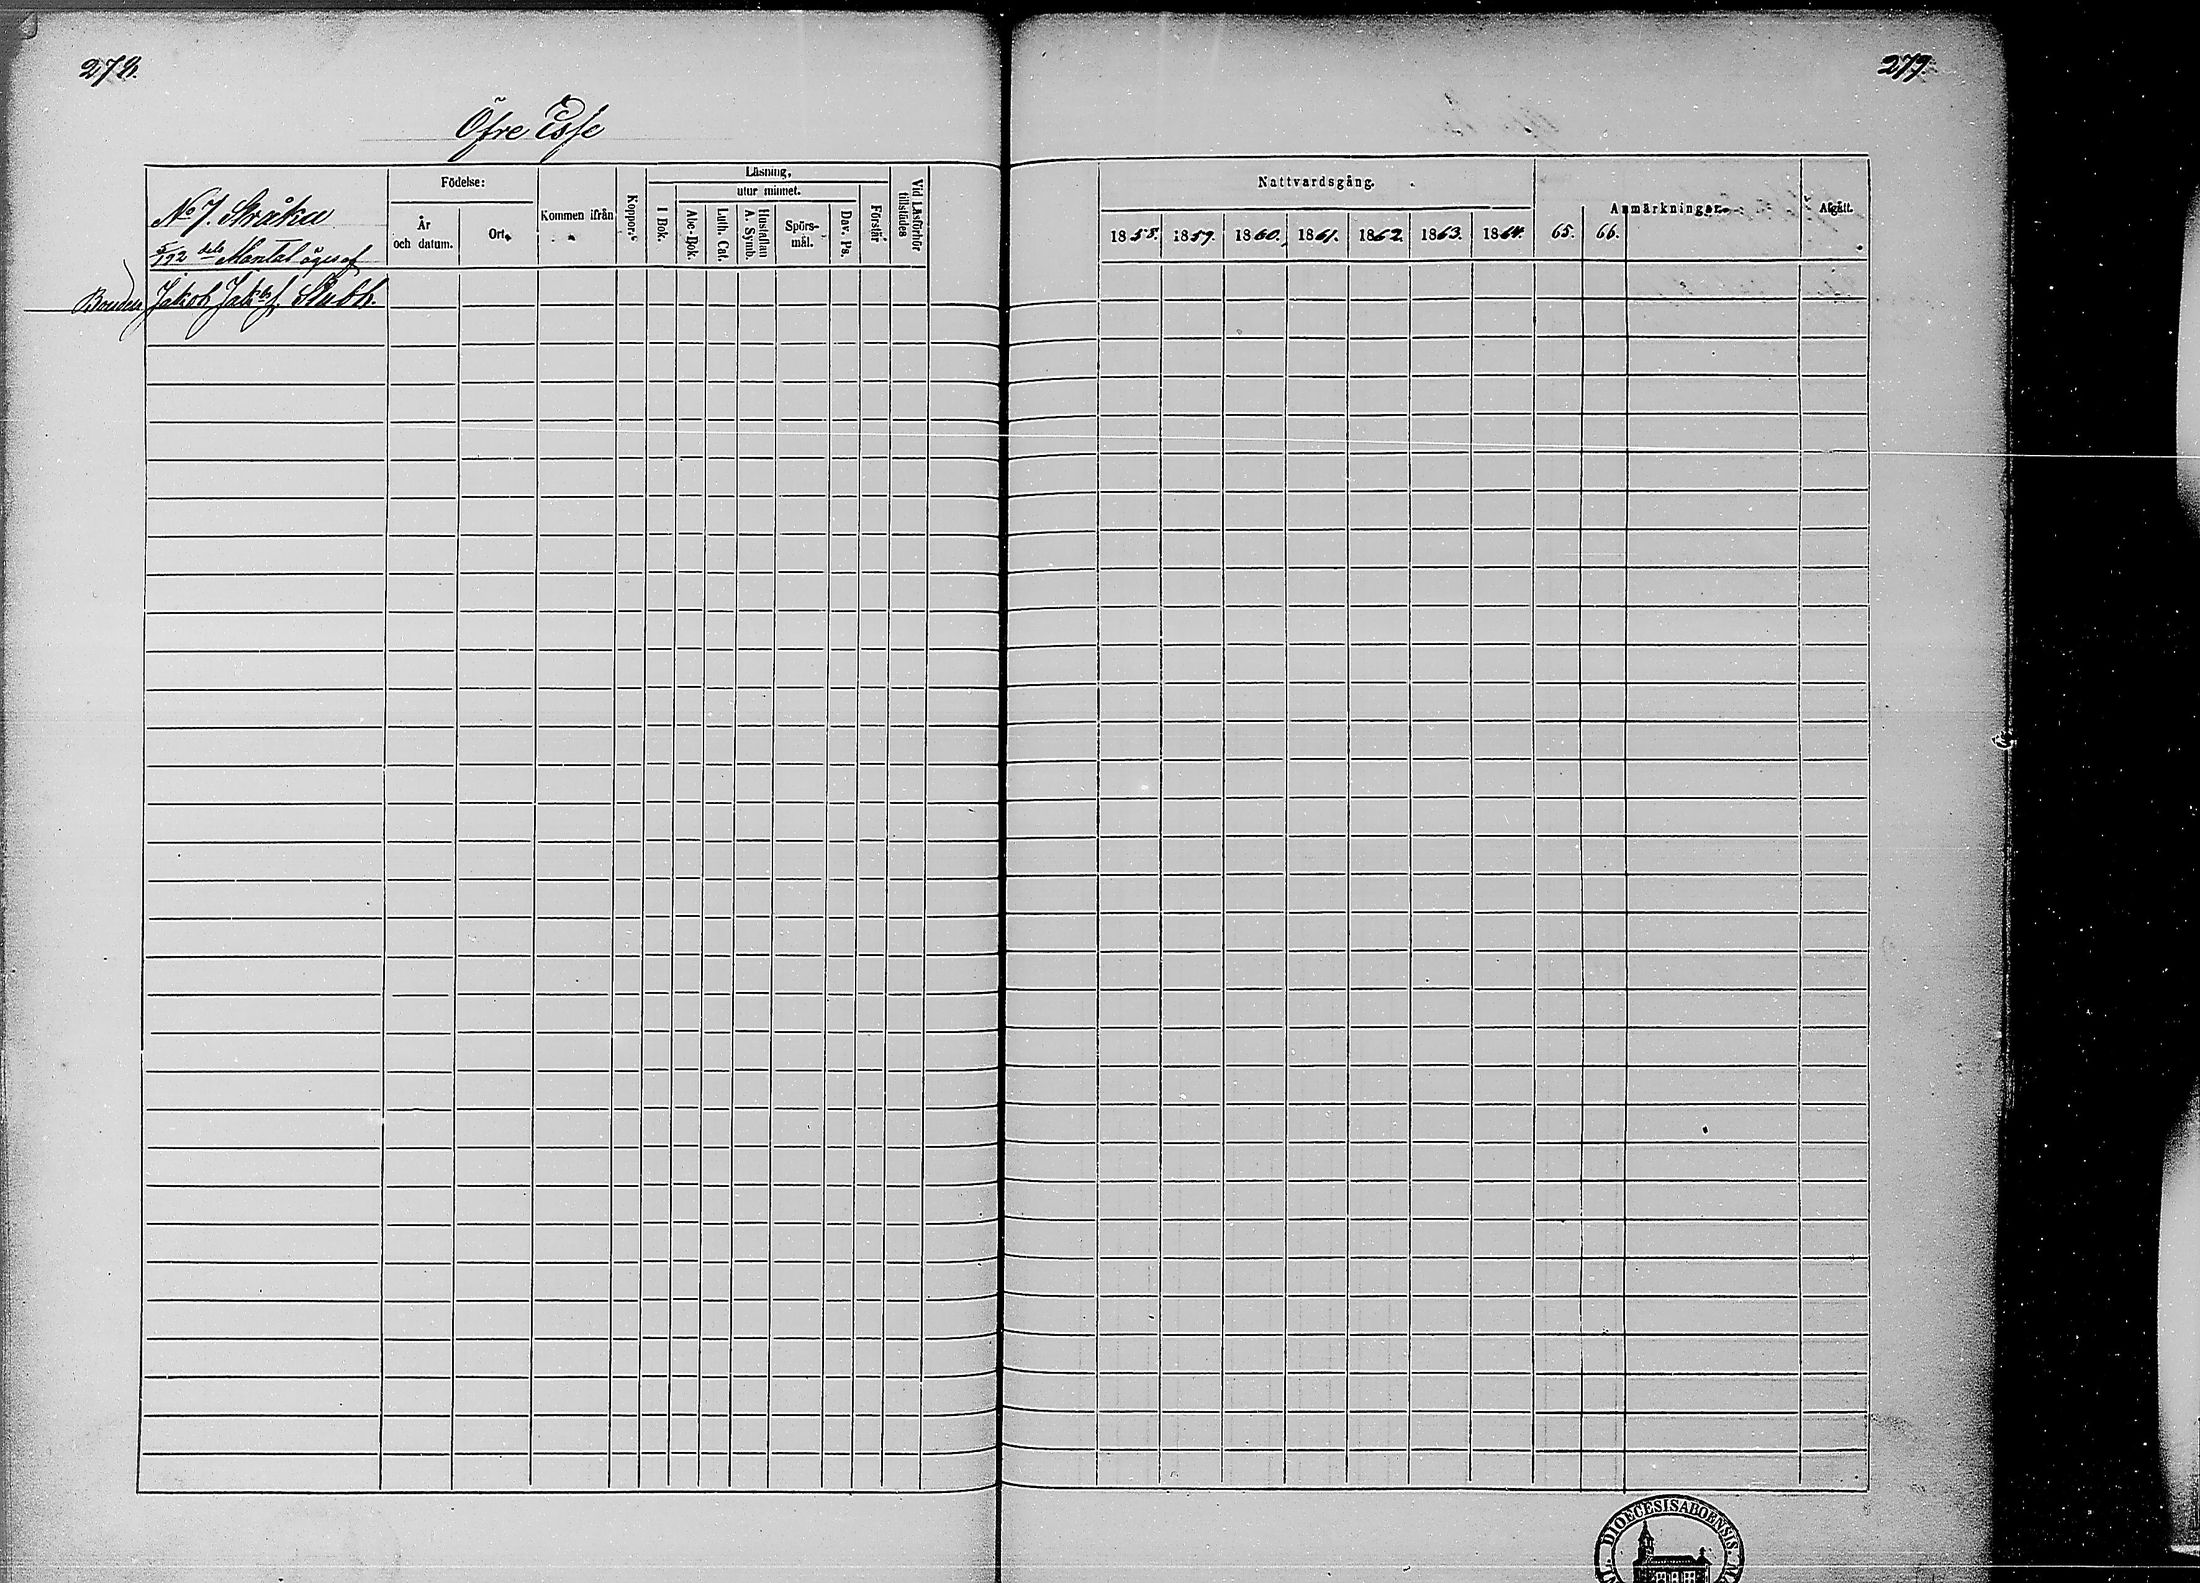 278.
Öfre Esse
No 7. Stråka
5/192 dels Mantal äges af
Bonden Jakob Jak:s f. Stubb.
Födelse:
År och datum.
Ort.
Kommen ifrån
Koppor.
Läsning,
I Bok.
utur minnet.
Abc-Bok.
Luth. Cat.
Hustaflan A. Symb.
Spörs-mål.
Dav. Ps.
Förstår
Vid Läsförhör tillstädes
279.
Nattvardsgång.
1858. 1859. 1860. 1861. 1862. 1863. 1864. 65. 66.
Anmärkningar.
Afgått.
DIOECESIS ABOENSIS